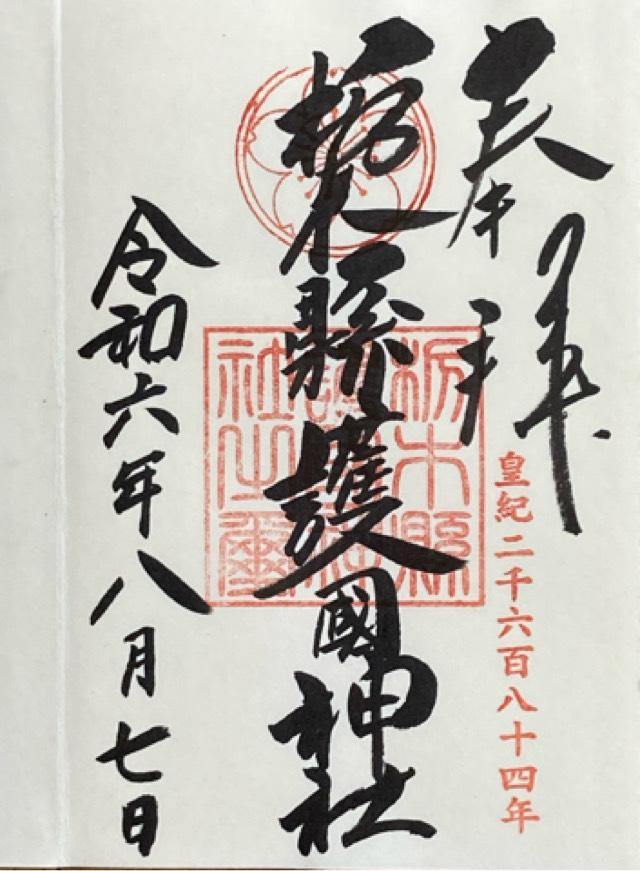 奉拝
皇紀二千六百八十四年
栃木縣護國神社
栃木縣護國神社之璽
令和六年八月七日